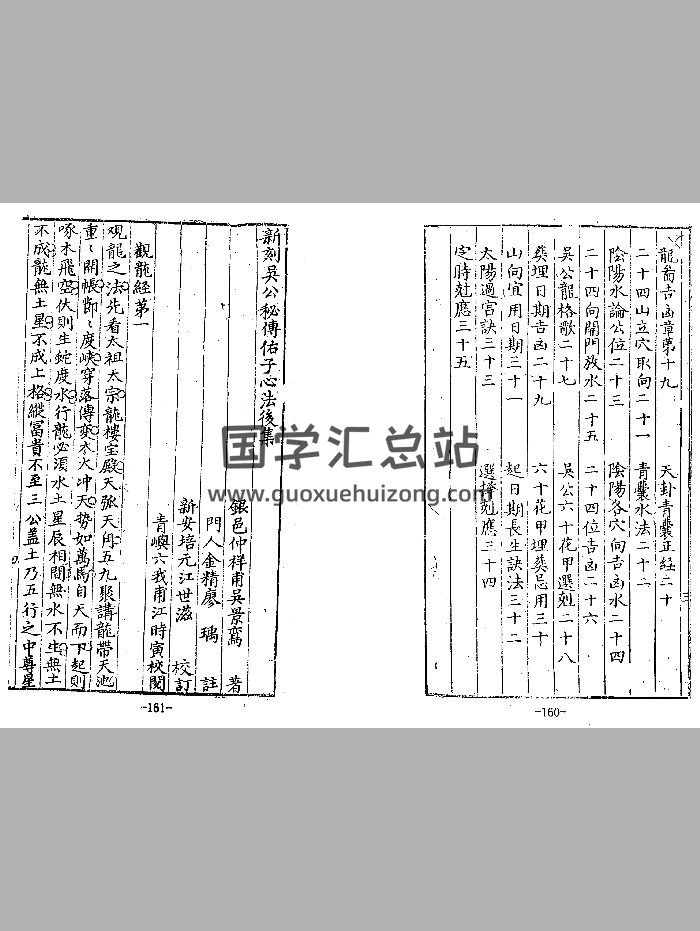 龍翁吉凶章第十九
天卦青囊正經二十
二十四山立穴取向二十一
青囊水法二十二
陰陽水論公位二十三
陰陽各穴向吉凶水二十四
二十四向開門放水二十五
二十四位吉凶二十六
吳公龍格歌二十七
吳公六十花甲選剋二十八
葵埋日期吉凶二十九
六十花甲埋葵忌用三十
山向宜用日期三十一
起日期長生訣法三十二
太陽過宮訣三十三
選擇尅應三十四
定時尅應三十五
-160-
新刻吳公秘傳佑子心法後集
銀邑仲祥甫吳景鸞 著
門人金精廖瑀 註
新安培元江世滋 校訂
青嶼六我甫江時寅校閱
觀龍經第一
观龍之法先看太祖太宗龍樓宝殿天張天角五九聚講龍帶天池
重重開帳断断度峽穿落傳変木火冲天势如萬馬自天而下起則
啄木飛空伏則生蛇度水行龍必須水土星辰相間無水不生無土
不成龍無土星不成上格縱富貴不至三公盖土乃五行之中尊星
-161-
国学汇总站
www.guoxuehuizong.com